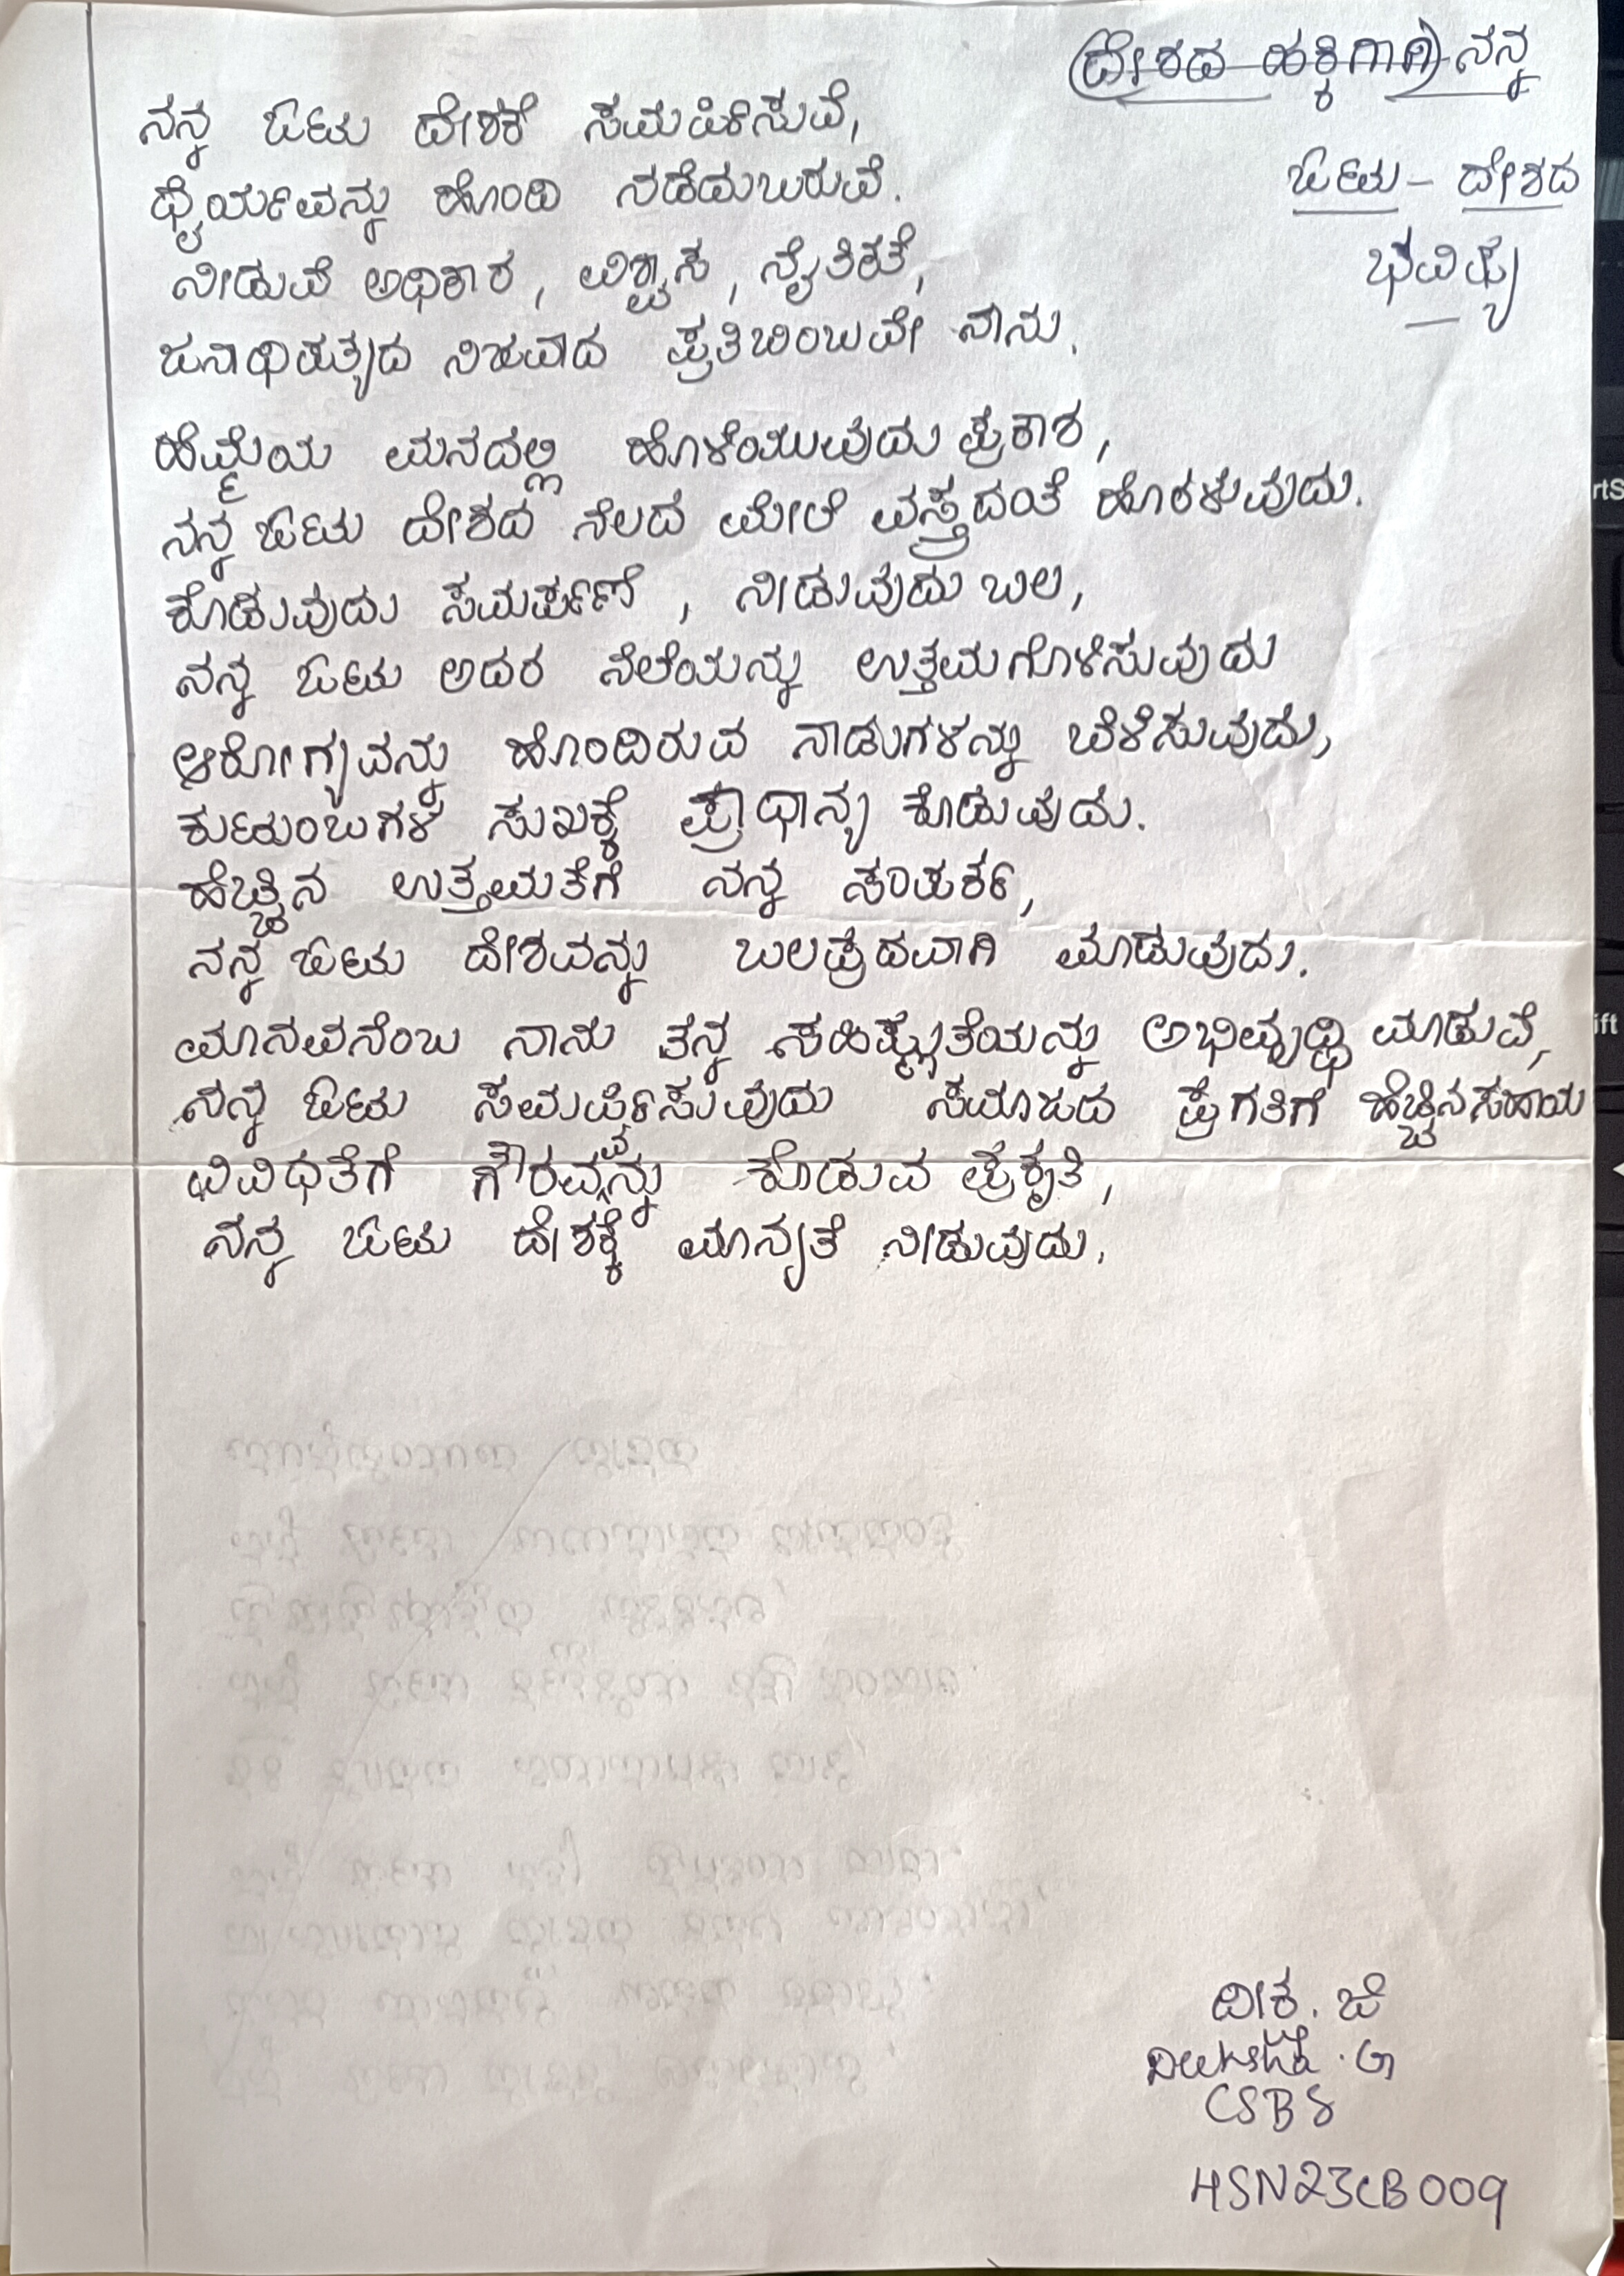 (ದೇಶದ ಹಕ್ಕಿಗಾಗಿ) ನನ್ನ
ಓಟು - ದೇಶದ
ಭವಿಷ್ಯ
ನನ್ನ ಓಟು ದೇಶಕೆ ಸಮರ್ಪಿಸುವೆ,
ಧೈರ್ಯವನ್ನು ಹೊಂದಿ ನಡೆದುಬರುವೆ.
ನೀಡುವೆ ಅಧಿಕಾರ, ವಿಶ್ವಾಸ, ನೈತಿಕತೆ,
ಜನಾಧಿಪತ್ಯದ ನಿಜವಾದ ಪ್ರತಿಬಿಂಬವೇ ನಾನು.
ಹೆಮ್ಮೆಯ ಮನದಲ್ಲಿ ಹೊಳೆಯುವುದು ಪ್ರಕಾಶ,
ನನ್ನ ಓಟು ದೇಶದ ನೆಲದ ಮೇಲೆ ವಸ್ತ್ರದಂತೆ ಹೊರಳುವುದು.
ಕೊಡುವುದು ಸಮರ್ಪಣೆ, ನೀಡುವುದು ಬಲ,
ನನ್ನ ಓಟು ಅದರ ನೆಲೆಯನ್ನು ಉತ್ತಮಗೊಳಿಸುವುದು
ಆರೋಗ್ಯವನ್ನು ಹೊಂದಿರುವ ನಾಡುಗಳನ್ನು ಬೆಳೆಸುವುದು,
ಕುಟುಂಬಗಳ ಸುಖಕ್ಕೆ ಪ್ರಾಧಾನ್ಯ ಕೊಡುವುದು.
ಹೆಚ್ಚಿನ ಉತ್ತಮತೆಗೆ ನನ್ನ ಸಂಪರ್ಕ,
ನನ್ನ ಓಟು ದೇಶವನ್ನು ಬಲಪ್ರದವಾಗಿ ಮಾಡುವುದು.
ಮಾನವನೆಂಬ ನಾನು ತನ್ನ ಸಹಿಷ್ಣುತೆಯನ್ನು ಅಭಿವೃದ್ಧಿ ಮಾಡುವೆ,
ನನ್ನ ಓಟು ಸಮರ್ಪಿಸುವುದು ಸಮಾಜದ ಪ್ರಗತಿಗೆ ಹೆಚ್ಚಿನ ಸಹಾಯ
ವಿವಿಧತೆಗೆ ಗೌರವವನ್ನು ಕೊಡುವ ಪ್ರಕೃತಿ,
ನನ್ನ ಓಟು ದೇಶಕ್ಕೆ ಮಾನ್ಯತೆ ನೀಡುವುದು.
ದೀಕ್ಷ. ಜೆ
Deeksha. G
CSBS
4SN23CB009